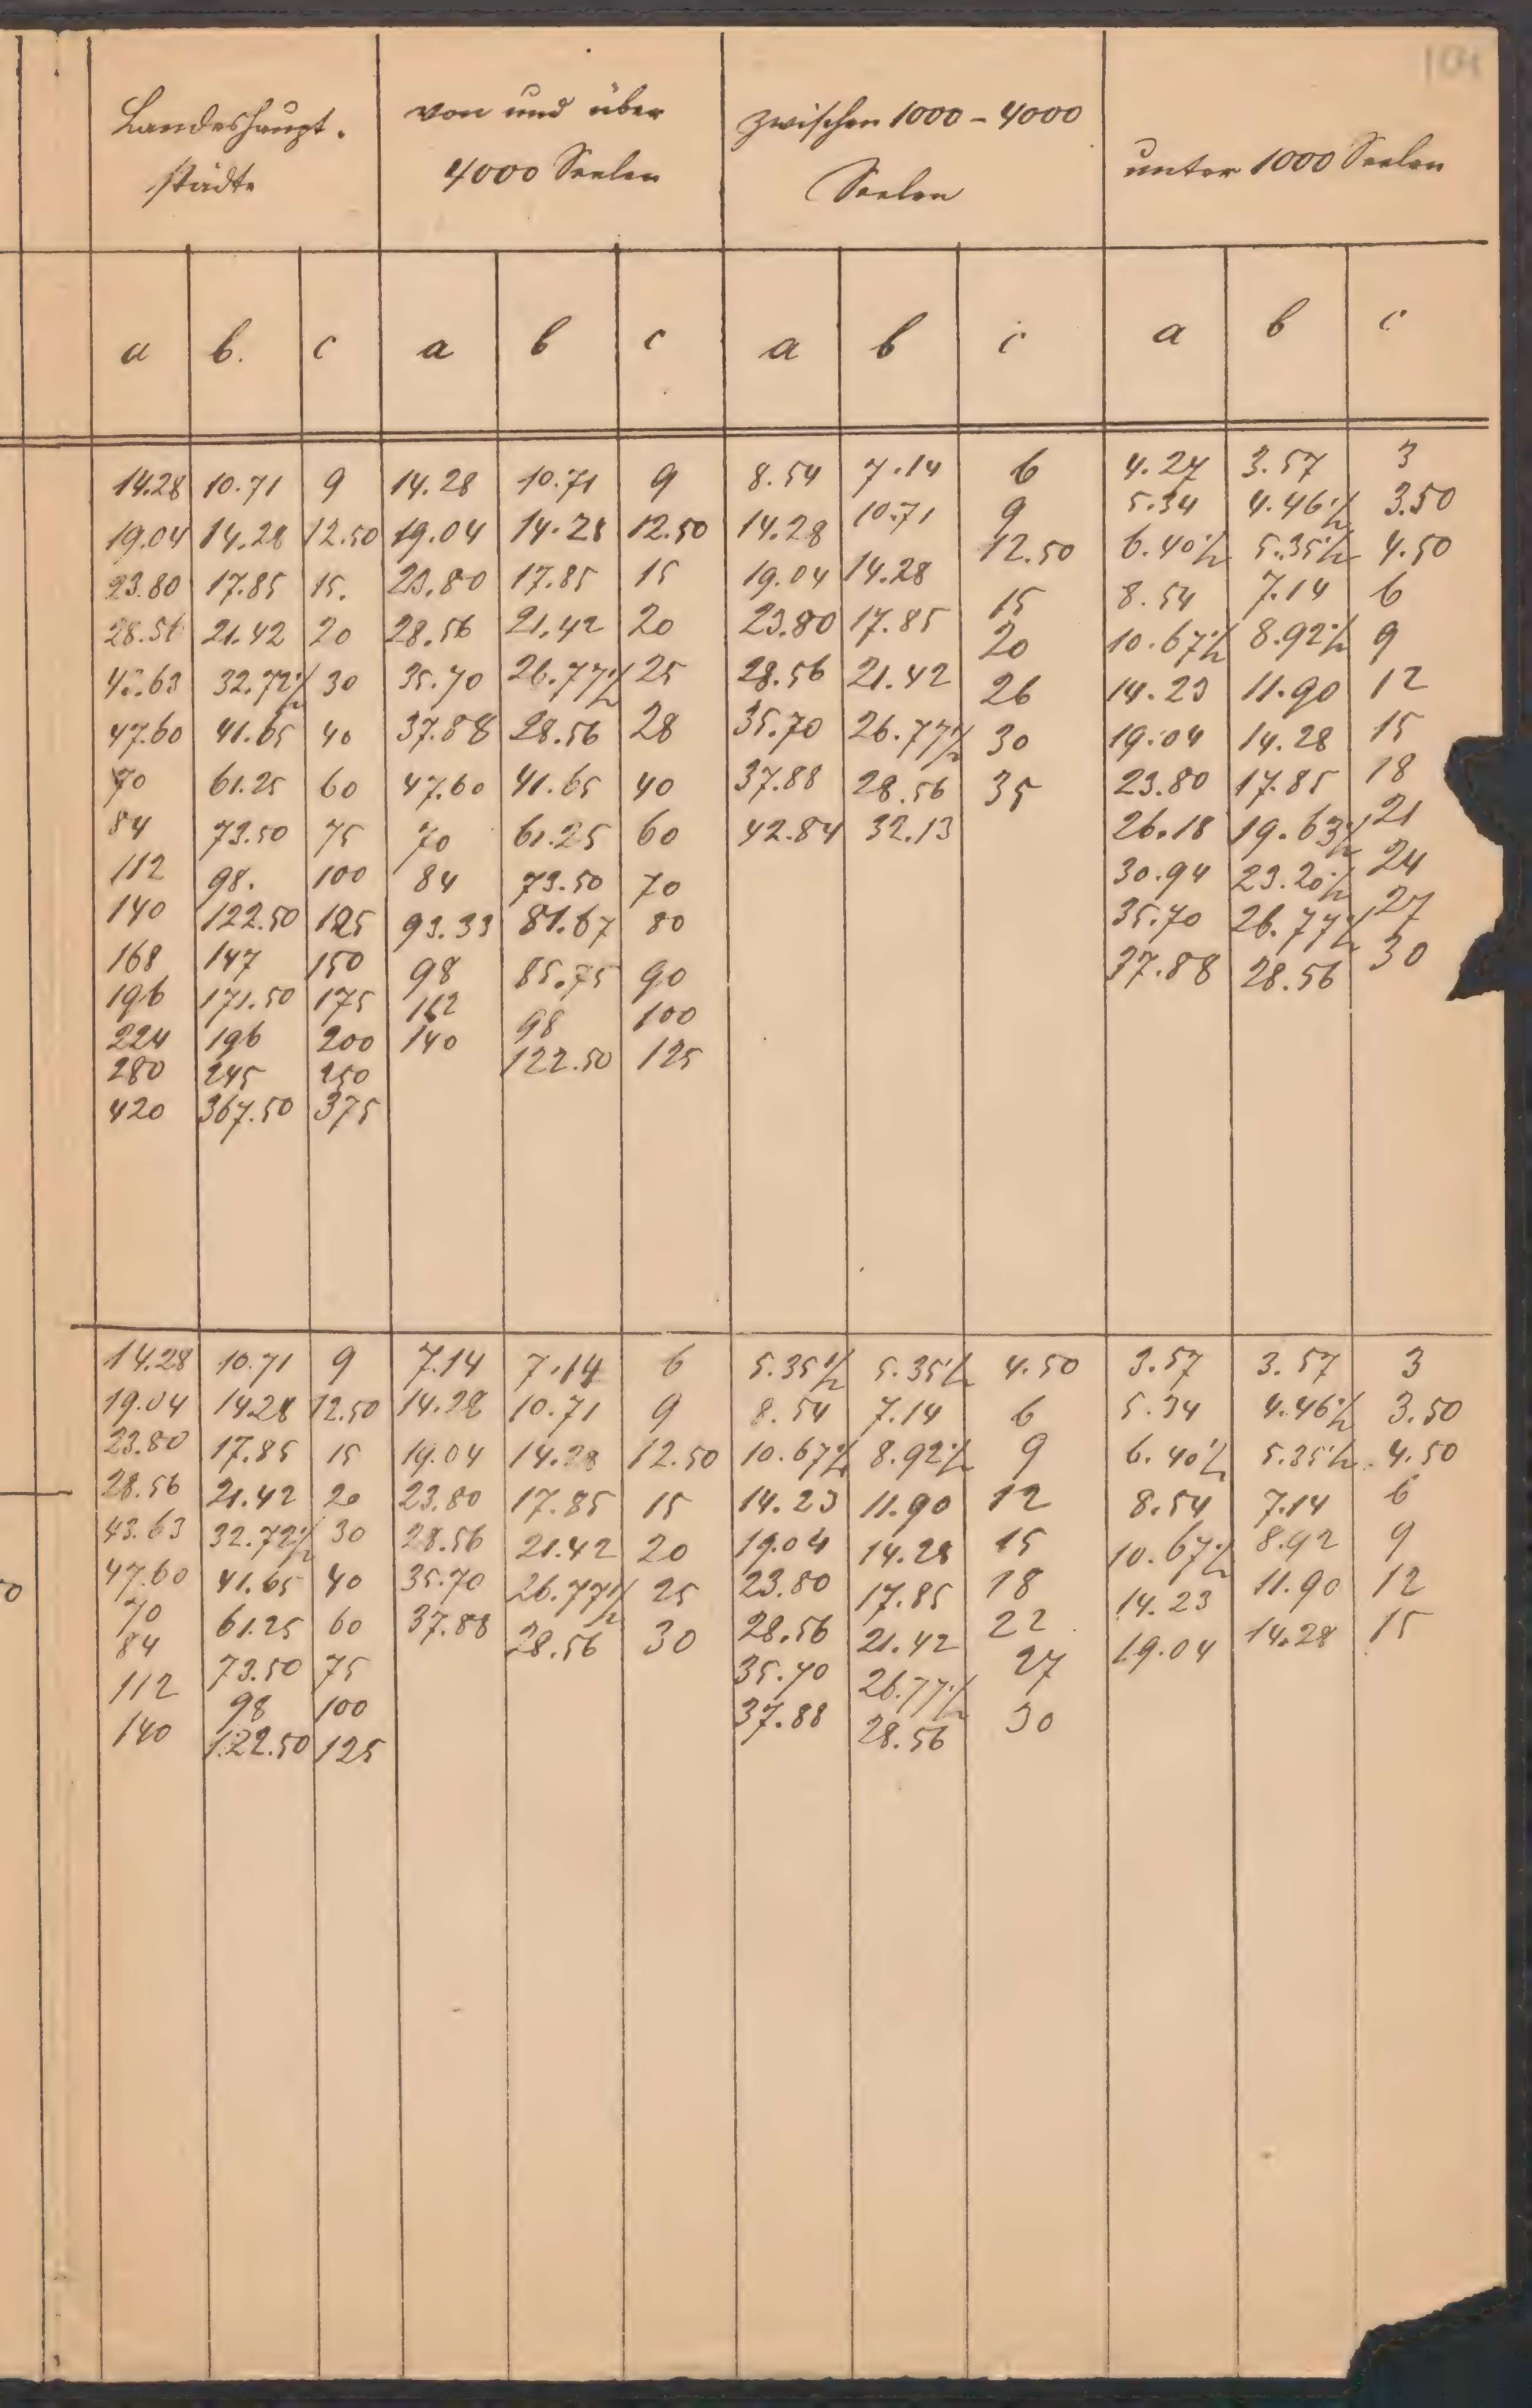 104
Landeshaupt- von und über zwischen 1000 - 4000 unter 1000 Seelen
städte 4000 Seelen Seelen
a b. c a b c a b c a b c
14.28 10.71 9 14.28 10.71 9 8.54 7.14 6 4.27 3.57 3
19.04 14.28 12.50 19.04 14.28 12.50 14.28 10.71 9 5.34 4.46½ 3.50
23.80 17.85 15. 23.80 17.85 15 19.04 14.28 12.50 6.40½ 5.35½ 4.50
28.56 21.42 20 28.56 21.42 20 23.80 17.85 15 8.54 7.14 6
43.63 32.72½ 30 35.70 26.77½ 25 28.56 21.42 20 10.67½ 8.92½ 9
47.60 41.65 40 37.88 28.56 28 35.70 26.77½ 26 14.23 11.90 12
70 61.25 60 47.60 41.65 40 37.88 28.56 30 19.04 14.28 15
84 73.50 75 70 61.25 60 42.84 32.13 35 23.80 17.85 18
112 98. 100 84 73.50 70 26.18 19.63½ 21
140 122.50 125 93.33 81.67 80 30.94 23.20½ 24
168 147 150 98 85.75 90 35.70 26.77½ 27
196 171.50 175 112 98 100 37.88 28.56 30
224 196 200 140 122.50 125
280 245 250
420 367.50 375
14.28 10.71 9 7.14 7.14 6 5.35½ 5.35½ 4.50 3.57 3.57 3
19.04 14.28 12.50 14.28 10.71 9 8.54 7.14 6 5.34 4.46½ 3.50
23.80 17.85 15 19.04 14.28 12.50 10.67½ 8.92½ 9 6.40½ 5.35½ 4.50
28.56 21.42 20 23.80 17.85 15 14.23 11.90 12 8.54 7.14 6
43.63 32.72½ 30 28.56 21.42 20 19.04 14.28 15 10.67½ 8.92 9
47.60 41.65 40 35.70 26.77½ 25 23.80 17.85 18 14.23 11.90 12
70 61.25 60 37.88 28.56 30 28.56 21.42 22 19.04 14.28 15
84 73.50 75 35.70 26.77½ 27
112 98 100 37.88 28.56 30
140 122.50 125